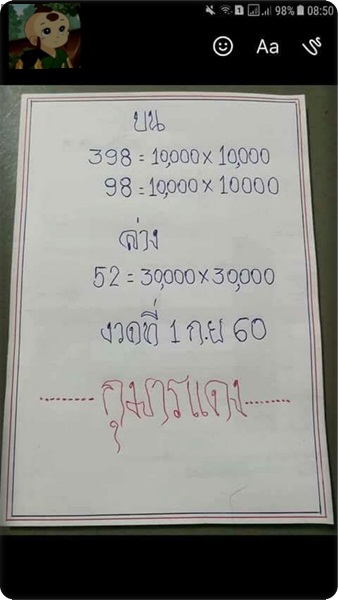 98% 08:50
Aa
บน
398 = 10,000 x 10,000
98 = 10,000 x 10000
ล่าง
52 = 30,000 x 30,000
งวดที่ 1 ก.ย 60
กุมารแดง